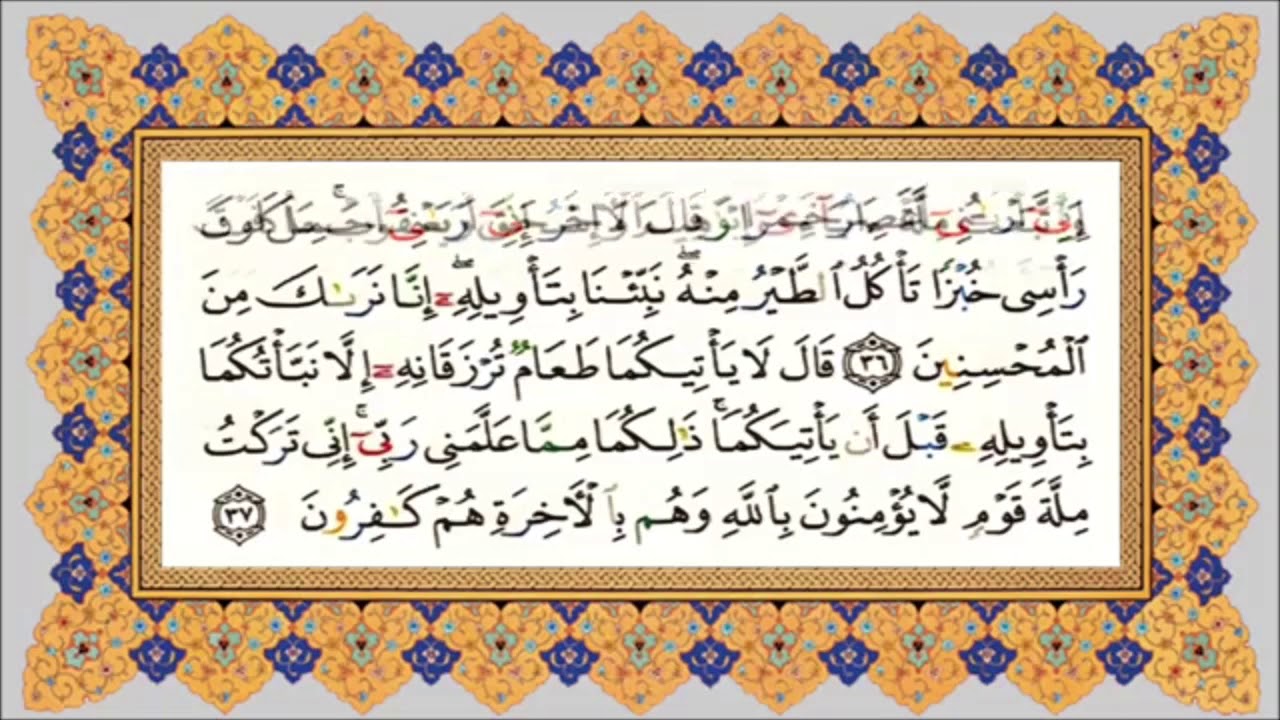 رَأْسِى خُبْزًا تَأْكُلُ ٱلطَّيْرُ مِنْهُ ۖ نَبِّئْنَا بِتَأْوِيلِهِۦٓ ۖ إِنَّا نَرَىٰكَ مِنَ
ٱلْمُحْسِنِينَ ٣٦ قَالَ لَا يَأْتِيكُمَا طَعَامٌ تُرْزَقَانِهِۦٓ إِلَّا نَبَّأْتُكُمَا
بِتَأْوِيلِهِۦ قَبْلَ أَن يَأْتِيَكُمَا ۚ ذَٰلِكُمَا مِمَّا عَلَّمَنِى رَبِّىٓ ۚ إِنِّى تَرَكْتُ
مِلَّةَ قَوْمٍ لَّا يُؤْمِنُونَ بِٱللَّهِ وَهُم بِٱلْـَٔاخِرَةِ هُمْ كَـٰفِرُونَ ٣٧